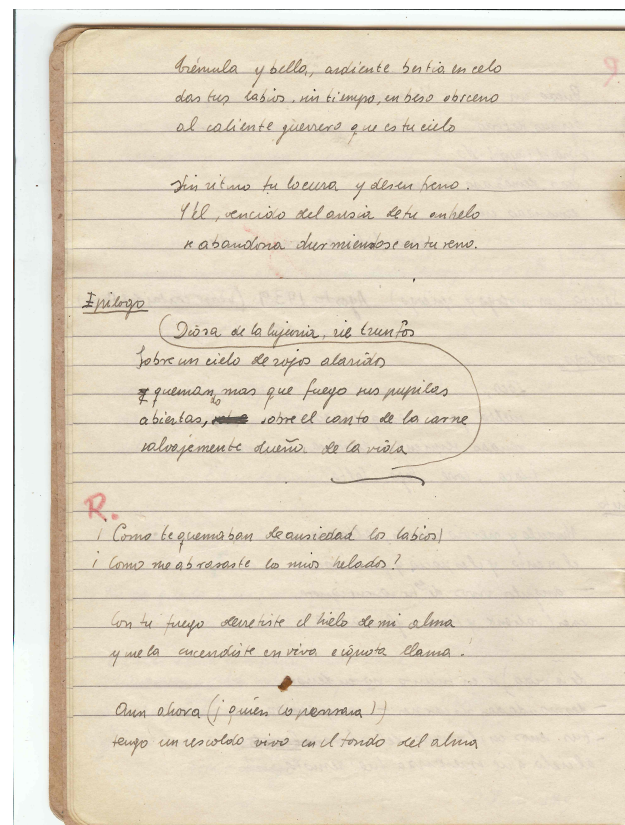 trémula y bella, ardiente bestia en celo
das tus labios, sin tiempo, en beso obsceno
al caliente guerrero que es tu cielo
Sin ritmo tu locura y desenfreno.
Y él, vencido del ansia de tu anhelo
se abandona durmiendose en tu seno.
Epilogo
(Diosa de la lujuria, rie triunfos
sobre un cielo de rojos alaridos
queman, mas que fuego sus pupilas
abiertas, sobre el canto de la carne
salvajemente dueño de la vida
R.
¡Como te quemaban de ansiedad los labios!
¡Como me abrasaste los mios helados?
Con tu fuego derretiste el hielo de mi alma
y me la encendiste en viva e ignota llama.
Aun ahora (¡quién lo pensara!)
tengo un rescoldo vivo en el fondo del alma